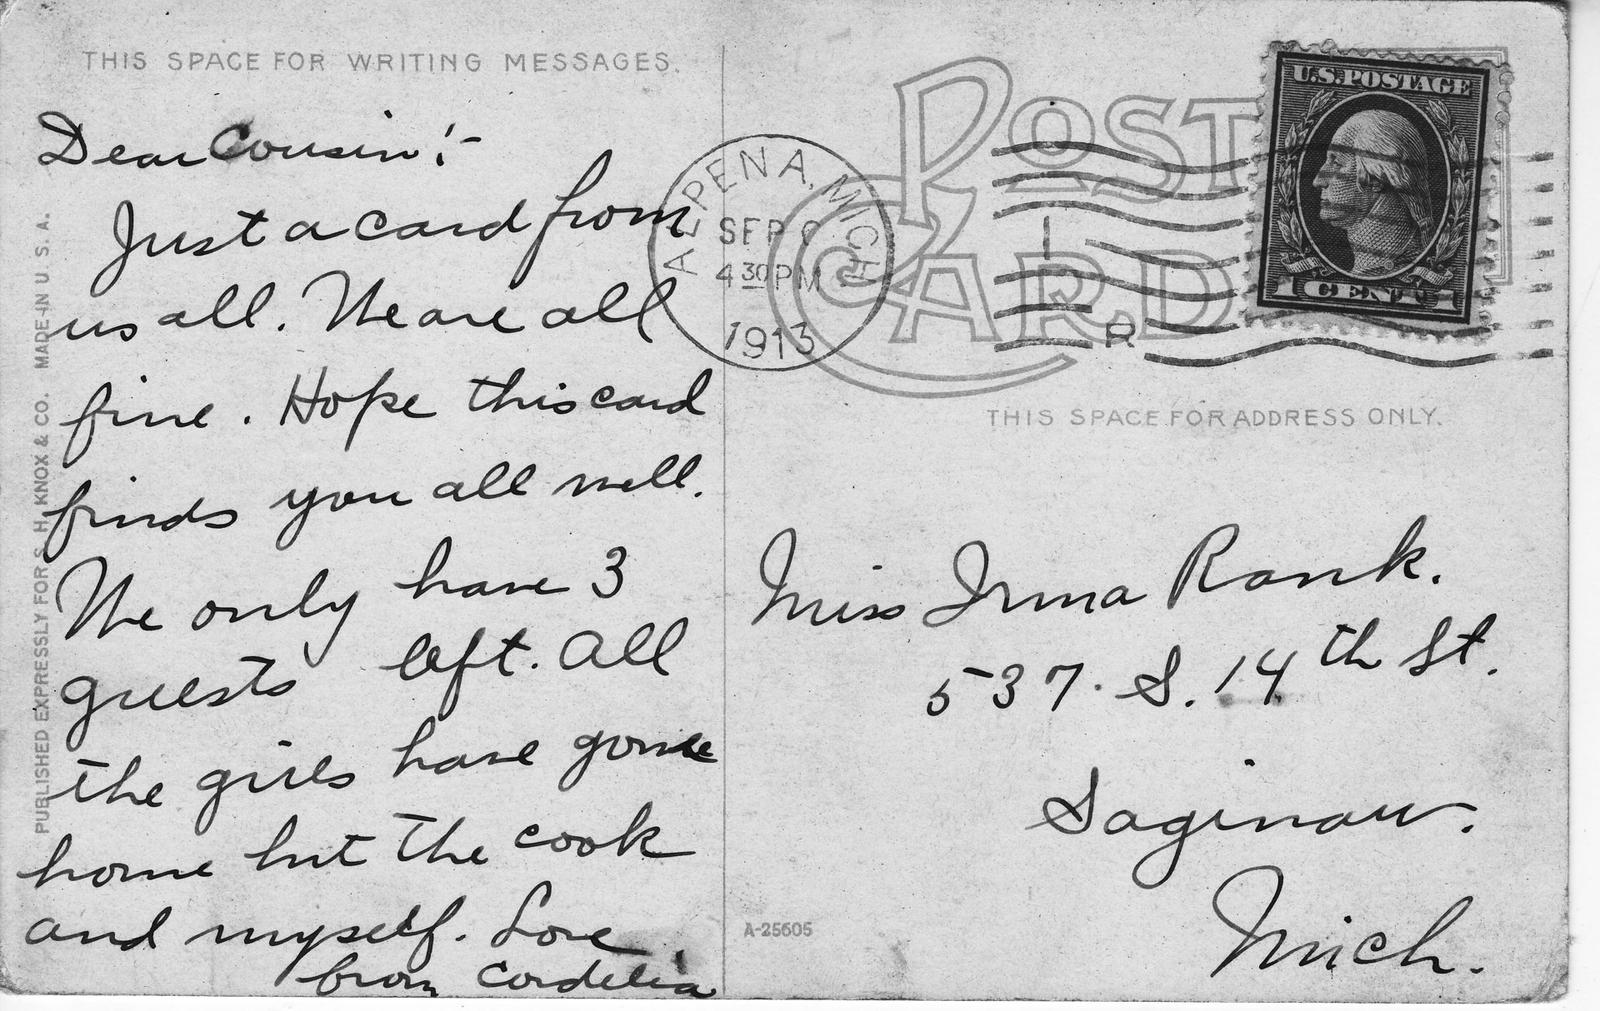 THIS SPACE FOR WRITING MESSAGES.
Dear Cousin:-
Just a card from
us all. We are all
fine. Hope this card
finds you all well.
We only have 3
guests left. All
the girls have gone
home but the cook
and myself. Love
from Cordelia
PUBLISHED EXPRESSLY FOR S. H. KNOX & CO. MADE IN U. S. A.
POST CARD
ALPENA, MICH
SEP
4 30 PM
1913
R
U.S. POSTAGE
1 CENT 1
THIS SPACE FOR ADDRESS ONLY.
Miss Irma Rank.
537. S. 14th St.
Saginaw.
Mich.
A-25605